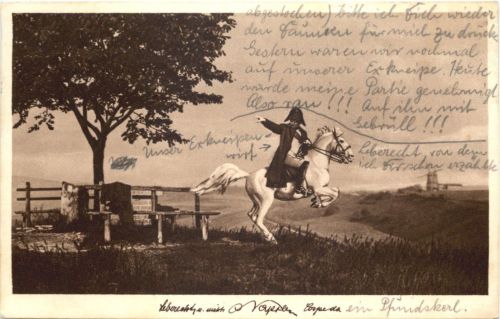 abgestochen) bitte ich Dich wieder
den Daumen für mich zu drücken
Gestern waren wir nochmal
auf unserer Exkneipe. Heute
wurde meine Partie genehmigt
Also ran!!! Auf ihn mit
Gebrüll!!!
Unser Exkneipen-
wirt →
Leberecht, von dem
ich Dir schon erzählte
ein Pfundskerl.